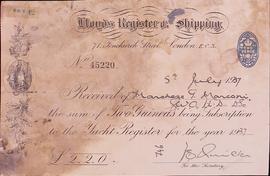 Lloyd's Register of Shipping.
71, Fenchurch Street, London. E.C.3.
No 45220
5th July 1937
Received of Marchese G. Marconi
the sum of Two Guineas being Subscription
to the Yacht Register for the year 1937
£2.2.0.
For the Secretary